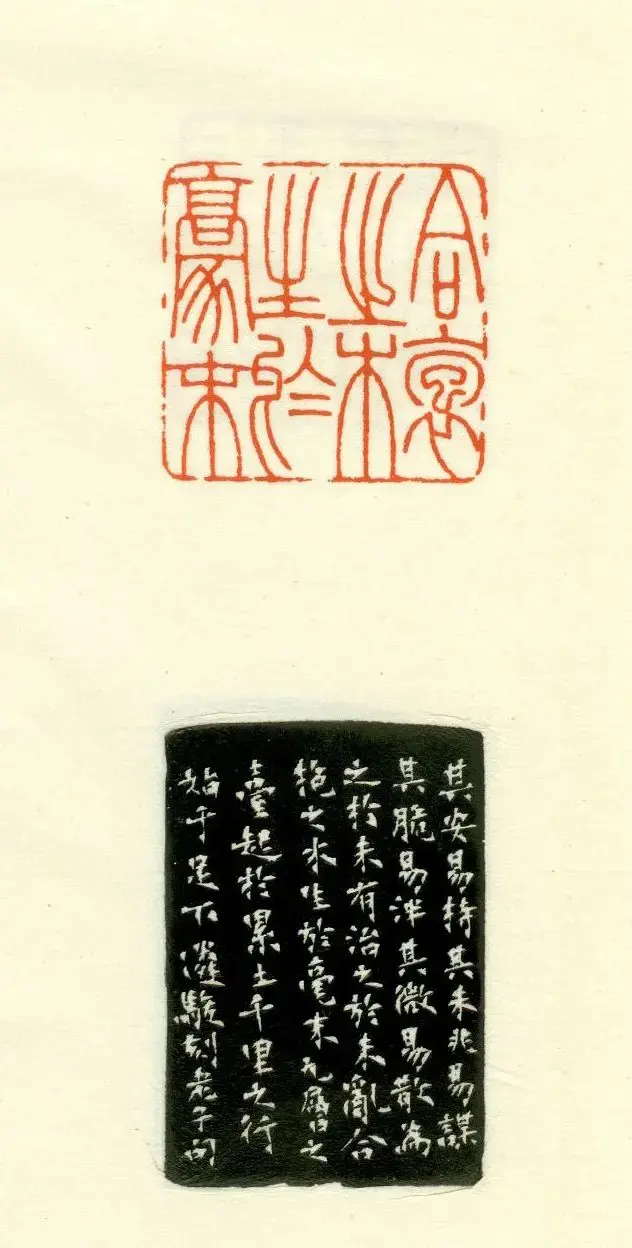 合褱
之木
生於
豪末
其安易持其未兆易謀
其脆易泮其微易散為
之於未有治之於未亂合
抱之木生於毫末九層之
臺起於累土千里之行
始于足下駿刻老子句